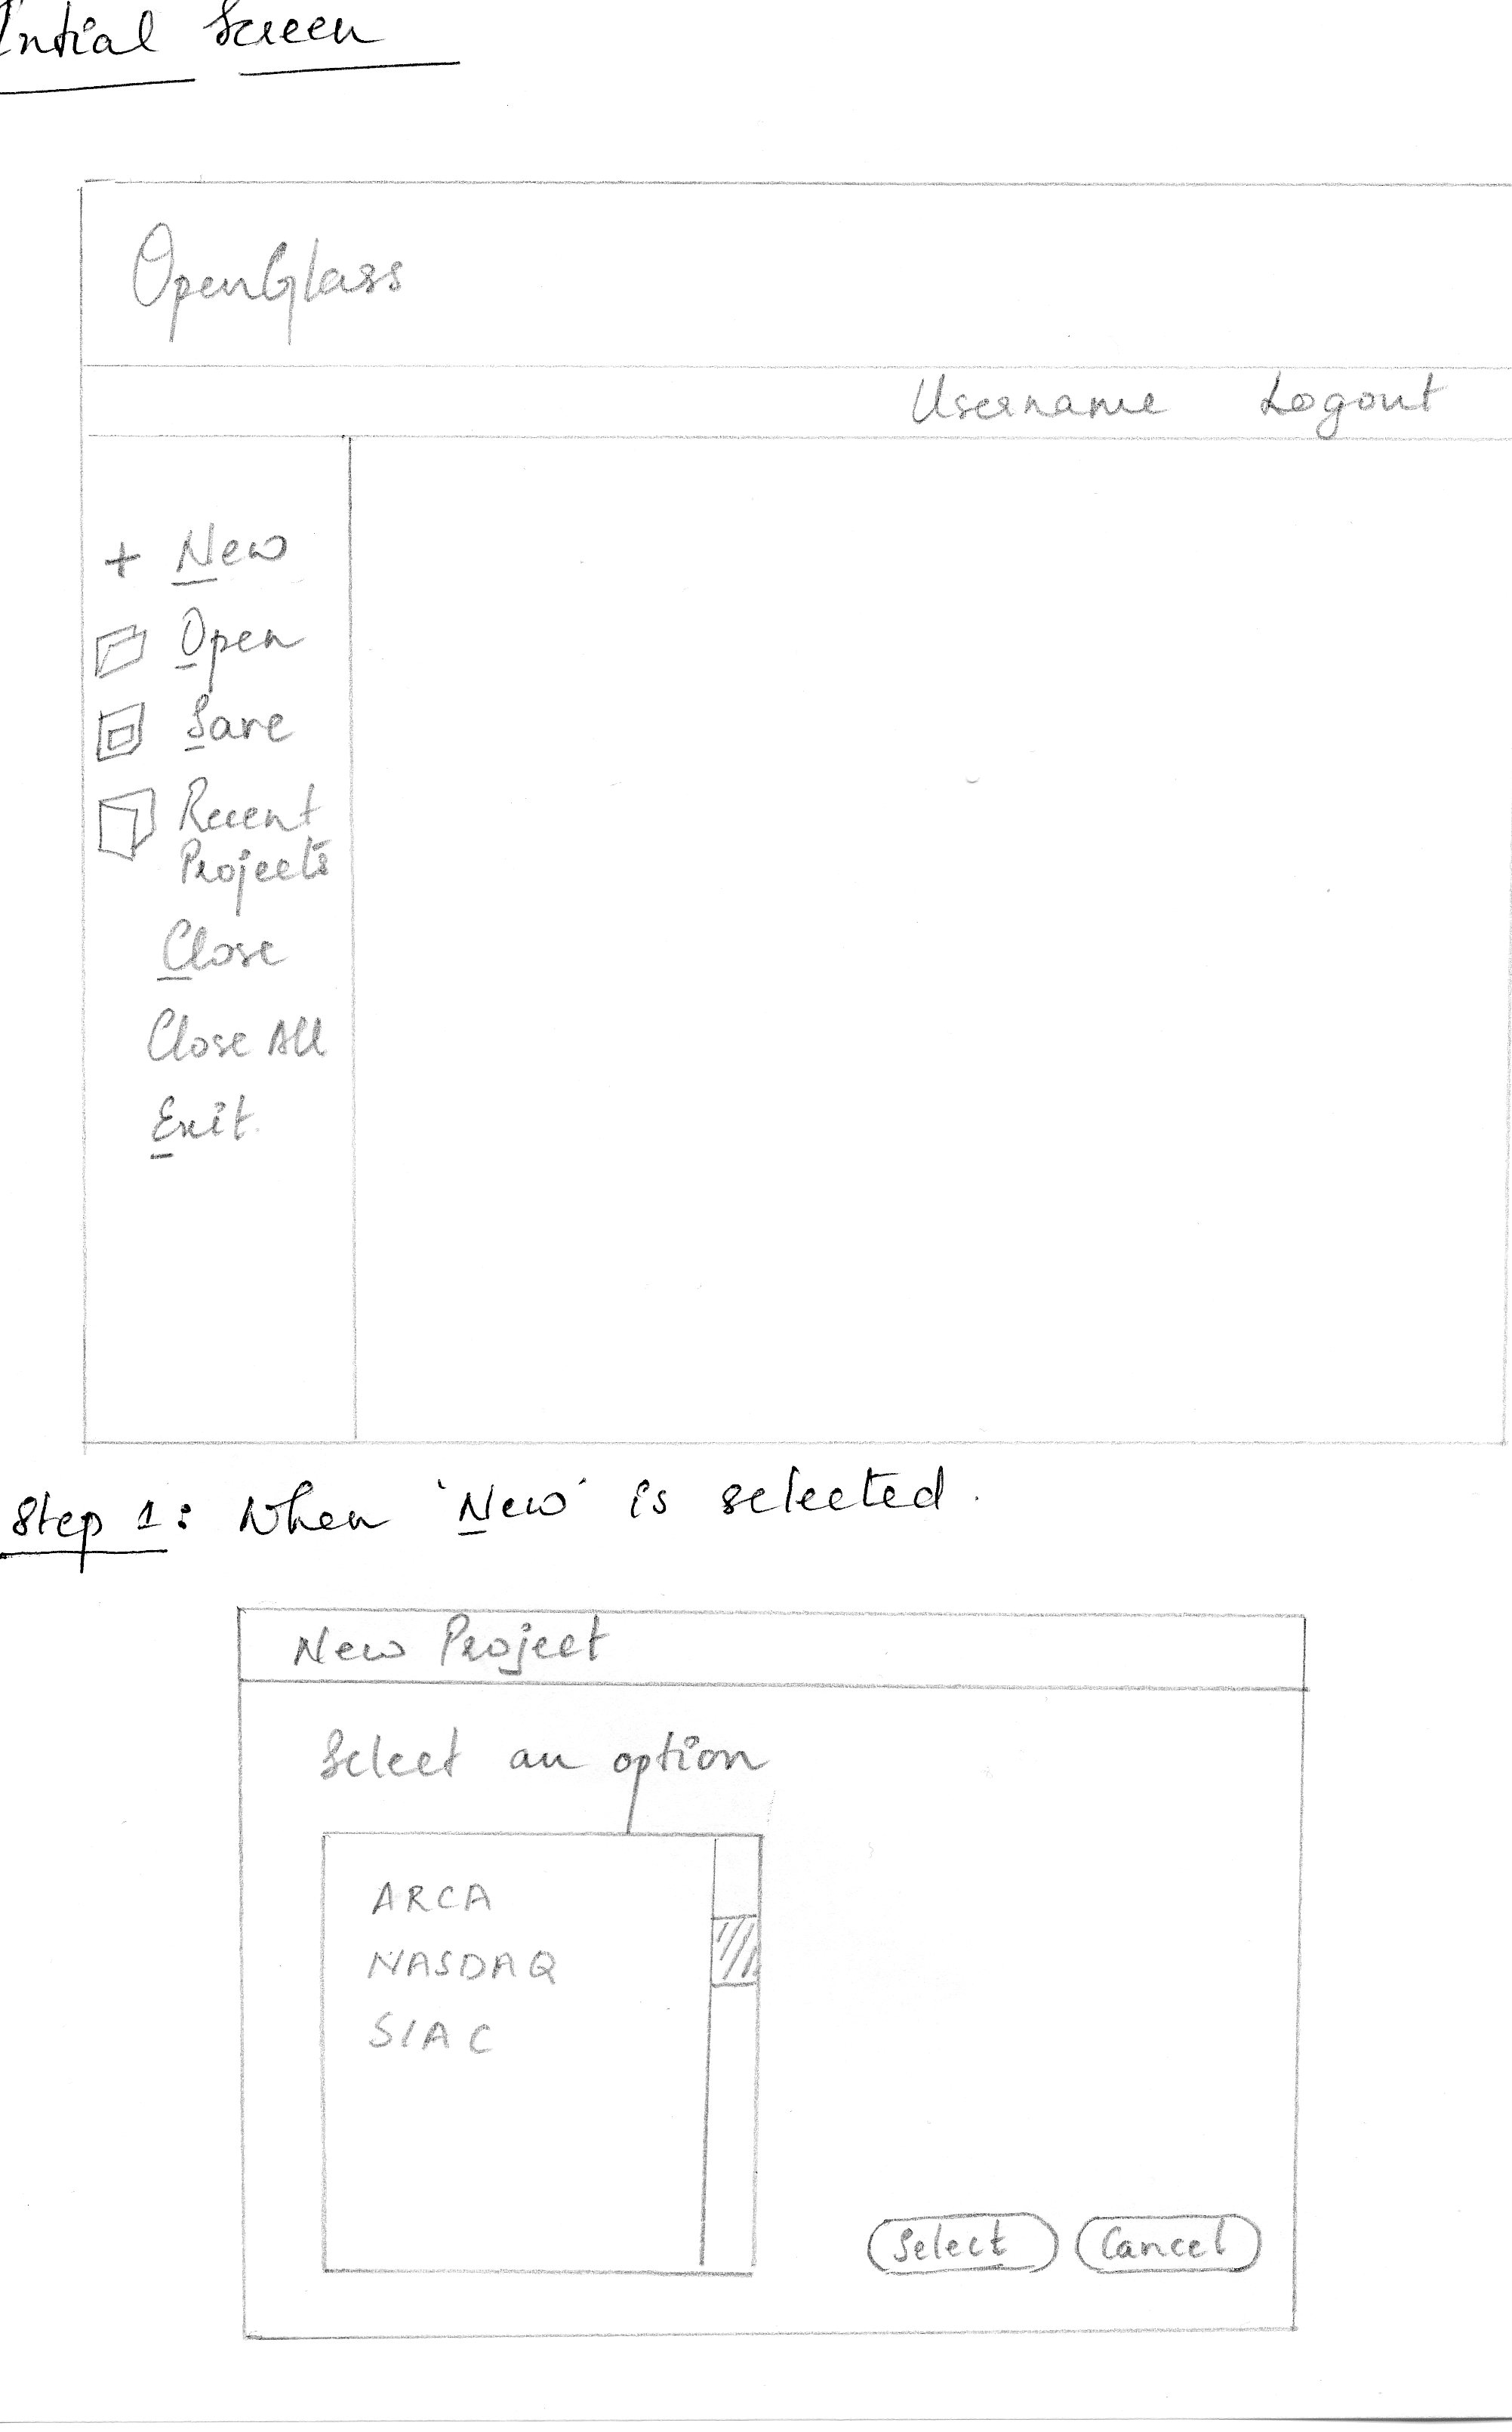 Intial Screen
OpenGlass
Username Logout
+ New
Open
Save
Recent
Projects
Close
Close All
Exit
Step 1: When 'New' is selected.
New Project
Select an option
ARCA
NASDAQ
SIAC
Select Cancel